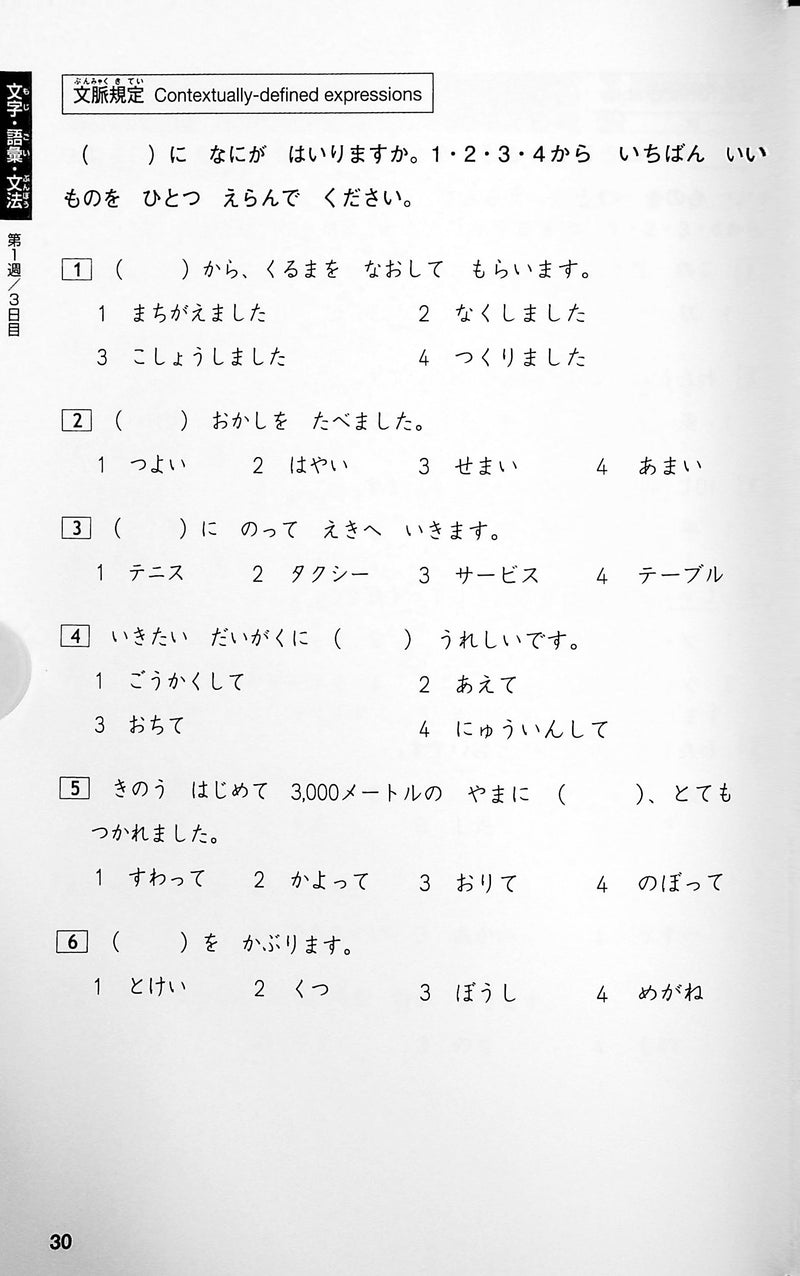 文字・語彙・文法
もじ ごい ぶんぽう
第1週/3日目
ぶんみゃくきてい
文脈規定 Contextually-defined expressions
(　　)に なにが はいりますか。1・2・3・4から いちばん いい
ものを ひとつ えらんで ください。
1 (　　)から、くるまを なおして もらいます。
1 まちがえました 2 なくしました
3 こしょうしました 4 つくりました
2 (　　) おかしを たべました。
1 つよい 2 はやい 3 せまい 4 あまい
3 (　　)に のって えきへ いきます。
1 テニス 2 タクシー 3 サービス 4 テーブル
4 いきたい だいがくに (　　) うれしいです。
1 ごうかくして 2 あえて
3 おちて 4 にゅういんして
5 きのう はじめて 3,000メートルの やまに (　　)、とても
つかれました。
1 すわって 2 かよって 3 おりて 4 のぼって
6 (　　)を かぶります。
1 とけい 2 くつ 3 ぼうし 4 めがね
30